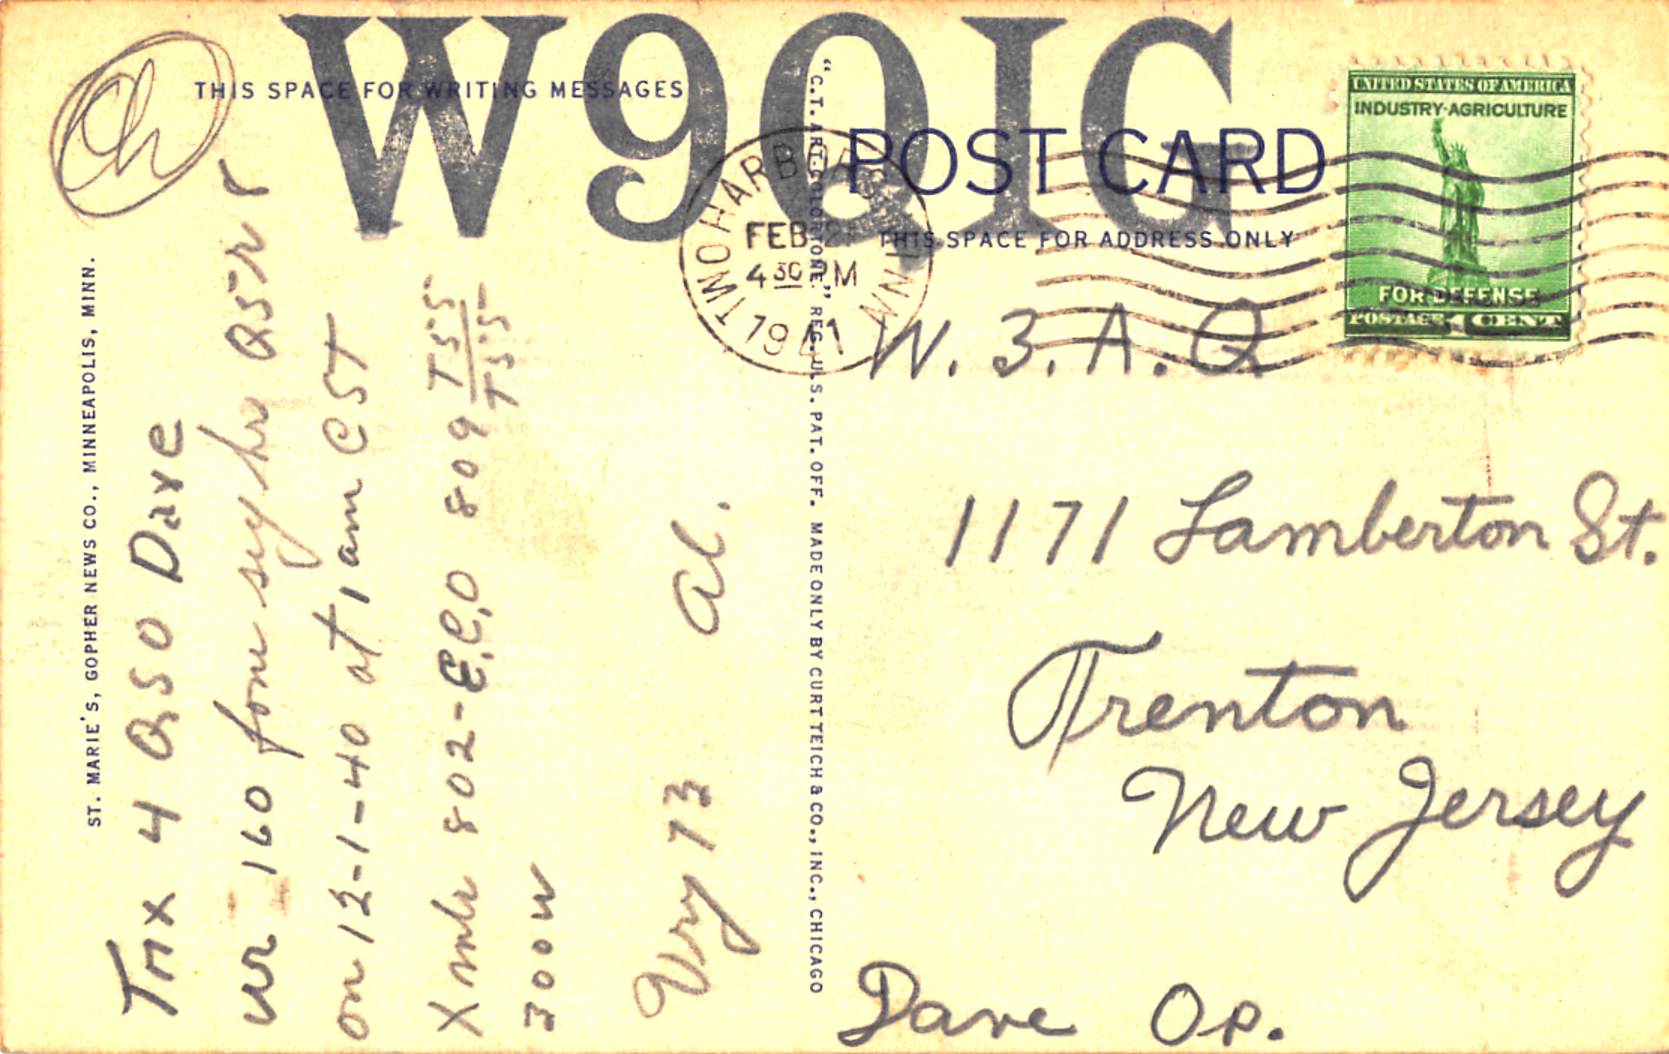 W9QIG
Ch
THIS SPACE FOR WRITING MESSAGES
ST. MARIE'S, GOPHER NEWS CO., MINNEAPOLIS, MINN.
Tnx 4 QSO Dave
ur 160 fone sig hr Q5 r
on 12-1-40 at 1 am CST
Xmtr 802-E.C.O 809 T55
T55
300w
Vry 73 Al.
"C.T. ART-COLORTONE" REG. U.S. PAT. OFF. MADE ONLY BY CURT TEICH & CO., INC., CHICAGO
POST CARD
THIS SPACE FOR ADDRESS ONLY
TWO HARBORS MINN
FEB
4 30 PM
1941
UNITED STATES OF AMERICA
INDUSTRY·AGRICULTURE
FOR DEFENSE
POSTAGE 1 CENT
W.3.A.Q.
1171 Lamberton St.
Trenton
New Jersey
Dave Op.